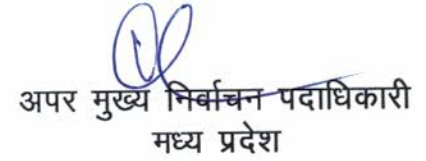 अपर मुख्य निर्वाचन पदाधिकारी
मध्य प्रदेश